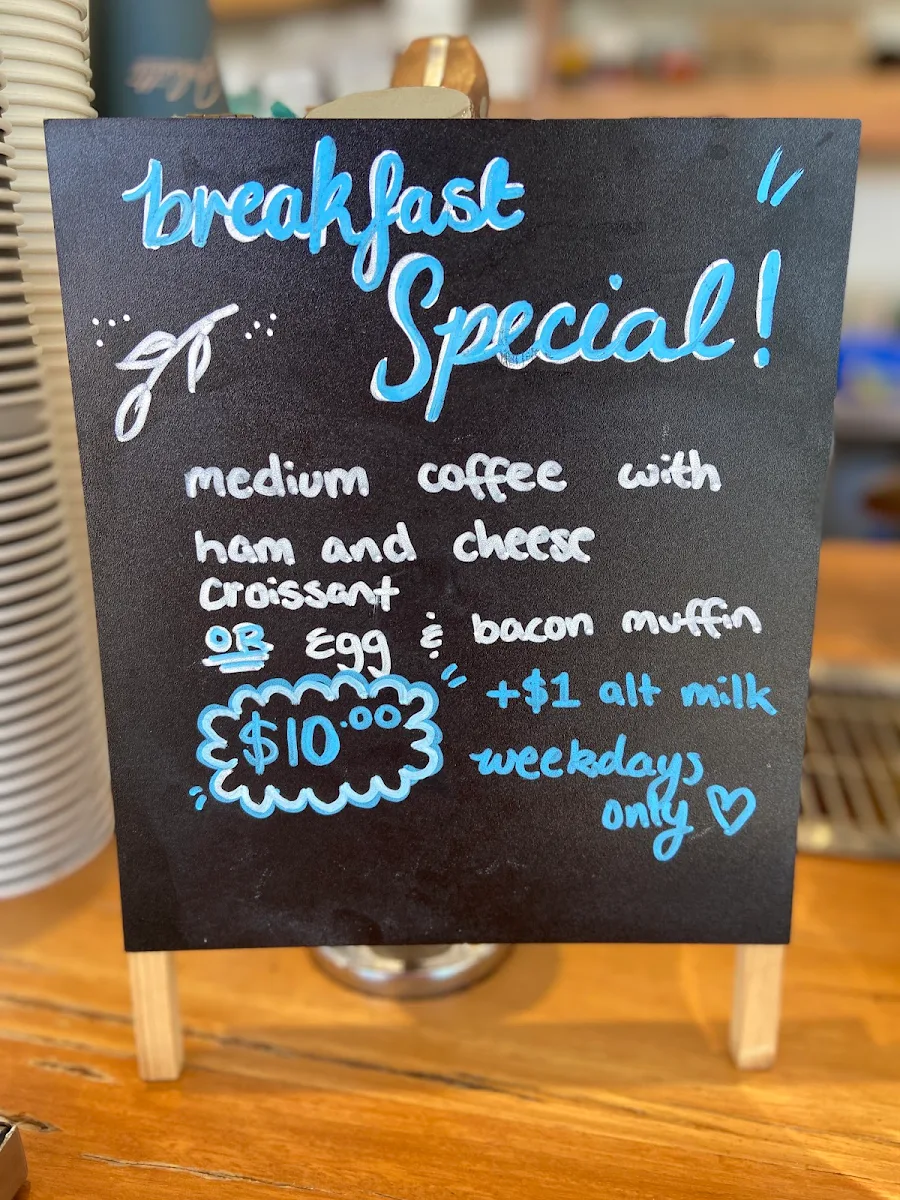 breakfast
Special!
medium coffee with
ham and cheese
croissant
OR Egg & bacon muffin
$10.00
+$1 alt milk
weekdays
only